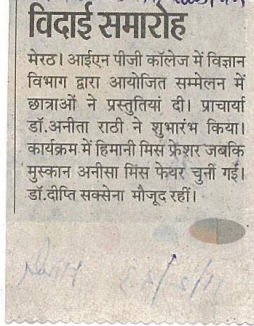 विदाई समारोह
मेरठ। आईएन पीजी कॉलेज में विज्ञान
विभाग द्वारा आयोजित सम्मेलन में
छात्राओं ने प्रस्तुतियां दी। प्राचार्या
डॉ.अनीता राठी ने शुभारंभ किया।
कार्यक्रम में हिमानी मिस फ्रेशर जबकि
मुस्कान अनीसा मिस फेयर चुनीं गईं।
डॉ.दीप्ति सक्सेना मौजूद रहीं।